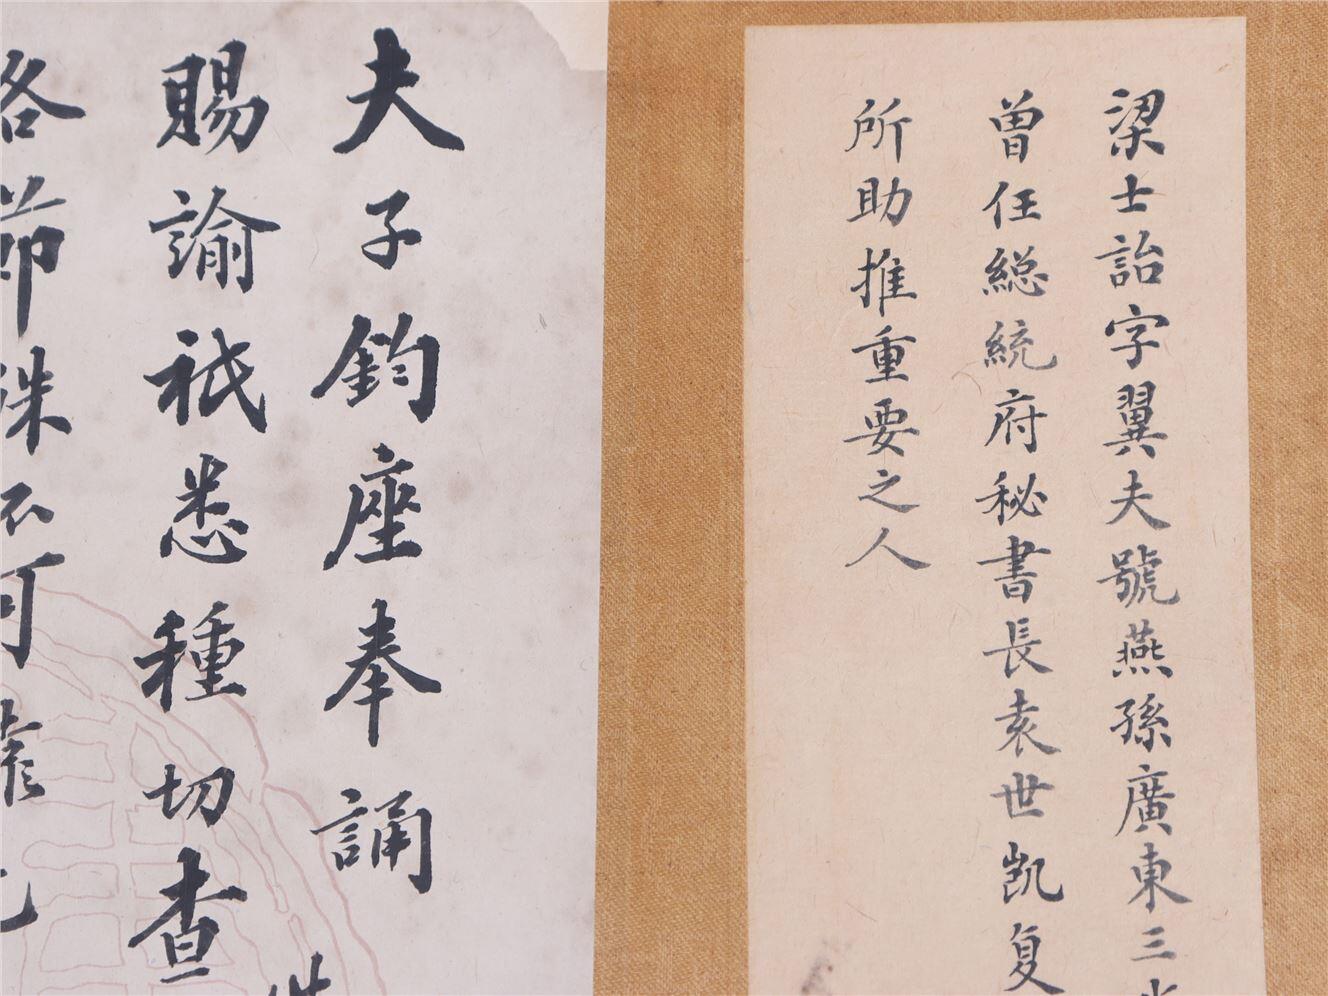 梁士詒字翼夫號燕孫廣東三
曾任總統府秘書長袁世凱复
所助推重要之人
夫子鈞座奉誦
賜諭祇悉種切查